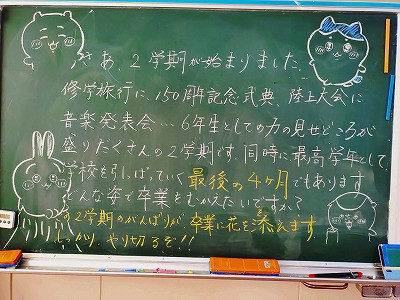 さあ、2学期が始まりました。
修学旅行に、150周年記念式典、陸上大会に
音楽発表会…6年生としての力の見せどころが
盛りだくさんの2学期です。同時に、最高学年として
学校を引っぱっていく最後の4ヶ月でもあります
どんな姿で卒業をむかえたいですか？
この2学期のがんばりが、卒業に花を添えます。
しっかり やり切るぞ!!